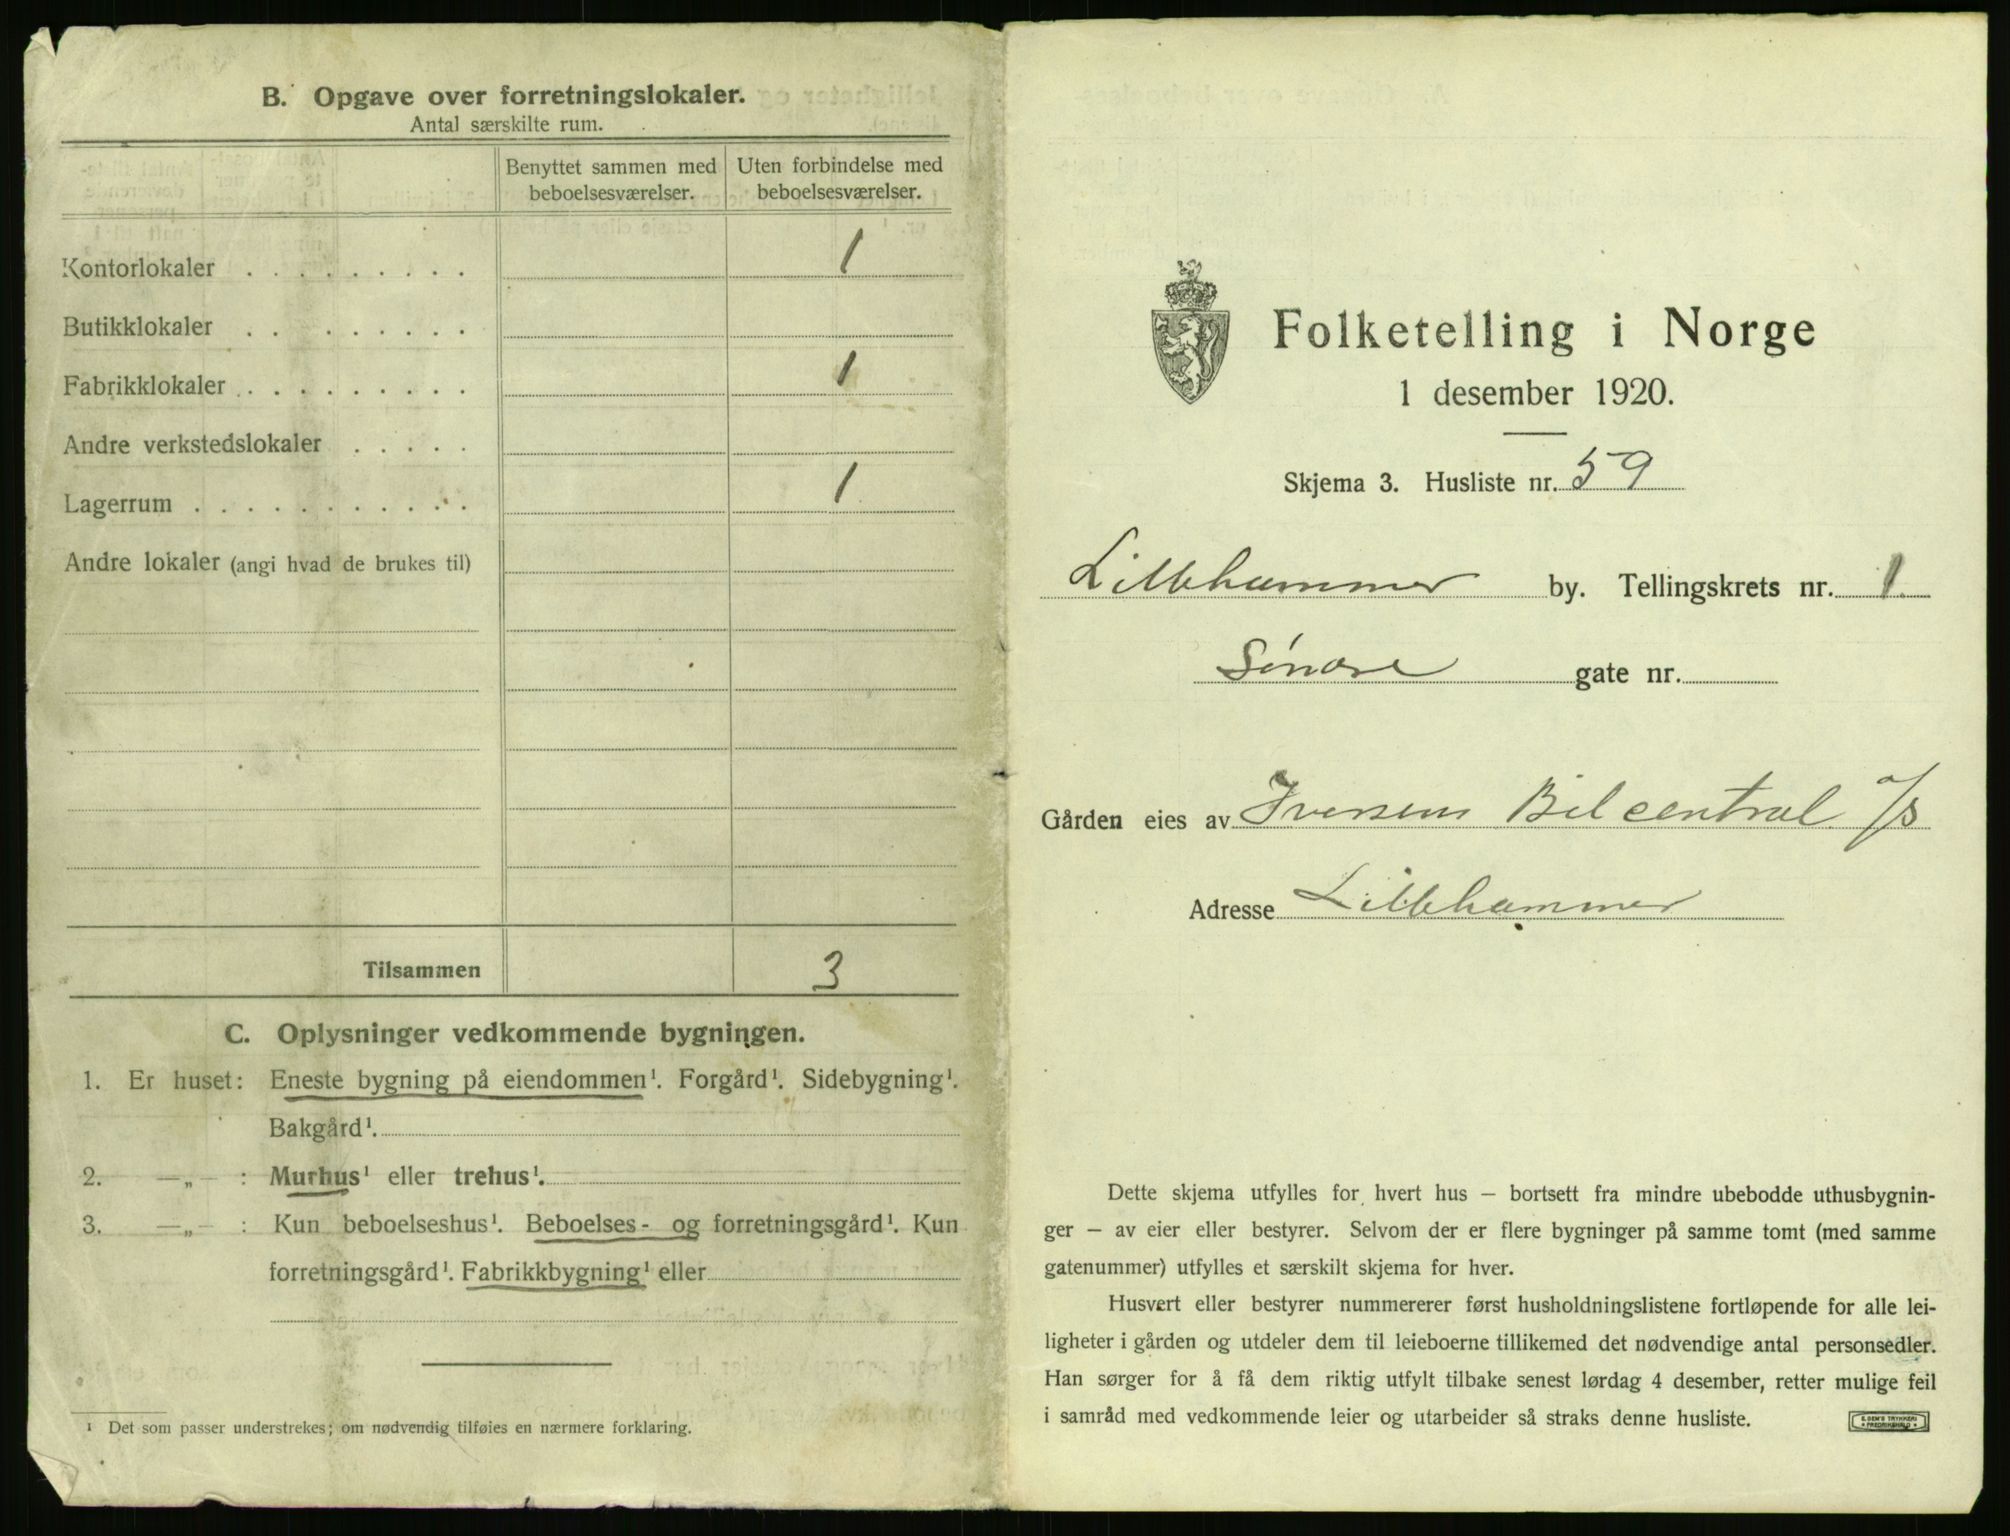 B. Opgave over forretningslokaler.
Antal særskilte rum.
Benyttet sammen med beboelsesværelser.
Uten forbindelse med beboelsesværelser.
Kontorlokaler . . . . . . . . . 1
Butikklokaler . . . . . . . .
Fabrikklokaler . . . . . . . . . 1
Andre verkstedslokaler . . . . .
Lagerrum . . . . . . . . . . . 1
Andre lokaler (angi hvad de brukes til)
Tilsammen 3
C. Oplysninger vedkommende bygningen.
1. Er huset: Eneste bygning på eiendommen¹. Forgård¹. Sidebygning¹.
Bakgård¹.
2. —„— : Murhus¹ eller trehus¹.
3. —„— : Kun beboelseshus¹. Beboelses- og forretningsgård¹. Kun
forretningsgård¹. Fabrikkbygning¹ eller
¹ Det som passer understrekes; om nødvendig tilføies en nærmere forklaring.
Folketelling i Norge
1 desember 1920.
Skjema 3. Husliste nr. 59
Lillehammer by. Tellingskrets nr. 1.
Søndre gate nr.
Gården eies av Iversens Bilcentral A/S
Adresse Lillehammer
Dette skjema utfylles for hvert hus – bortsett fra mindre ubebodde uthusbygnin-
ger – av eier eller bestyrer. Selvom der er flere bygninger på samme tomt (med samme
gatenummer) utfylles et særskilt skjema for hver.
Husvert eller bestyrer nummererer først husholdningslistene fortløpende for alle lei-
ligheter i gården og utdeler dem til leieboerne tillikemed det nødvendige antal personsedler.
Han sørger for å få dem riktig utfylt tilbake senest lørdag 4 desember, retter mulige feil
i samråd med vedkommende leier og utarbeider så straks denne husliste.
E. SEM'S TRYKKERI
FREDRIKSHALD